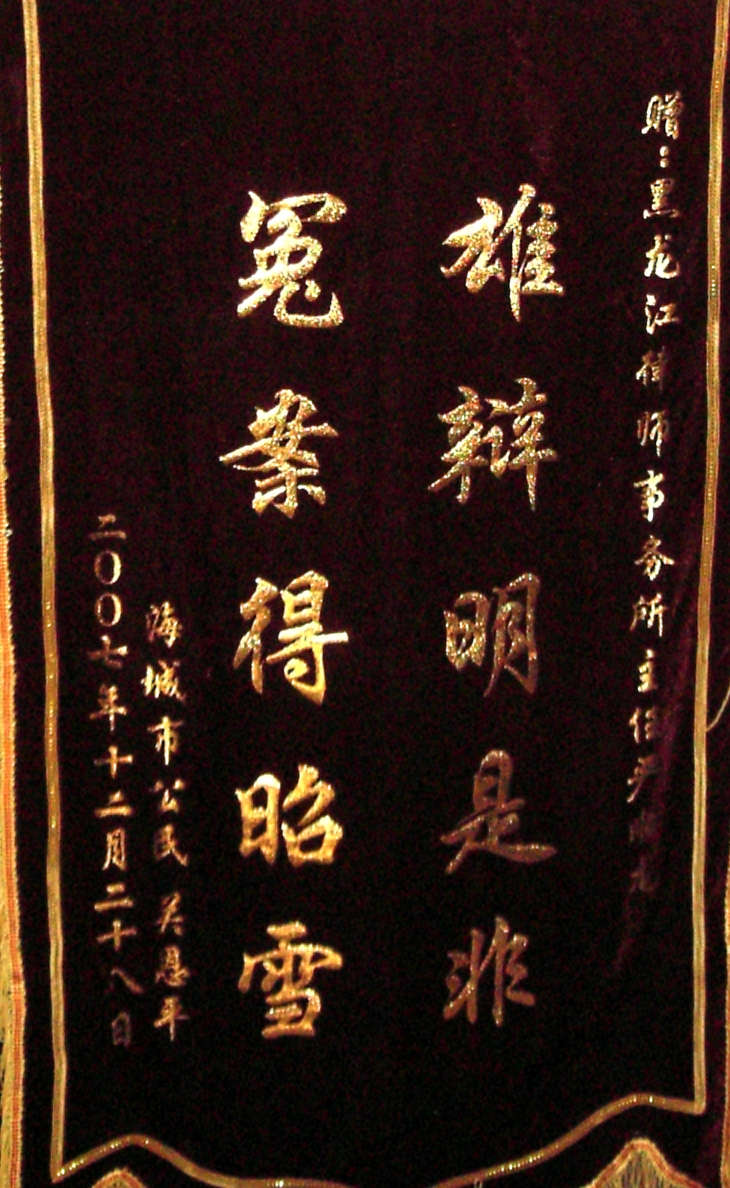 赠：黑龙江律师事务所主任严
雄辩明是非
冤案得昭雪
海城市公民 吴恩平
二〇〇七年十二月二十八日